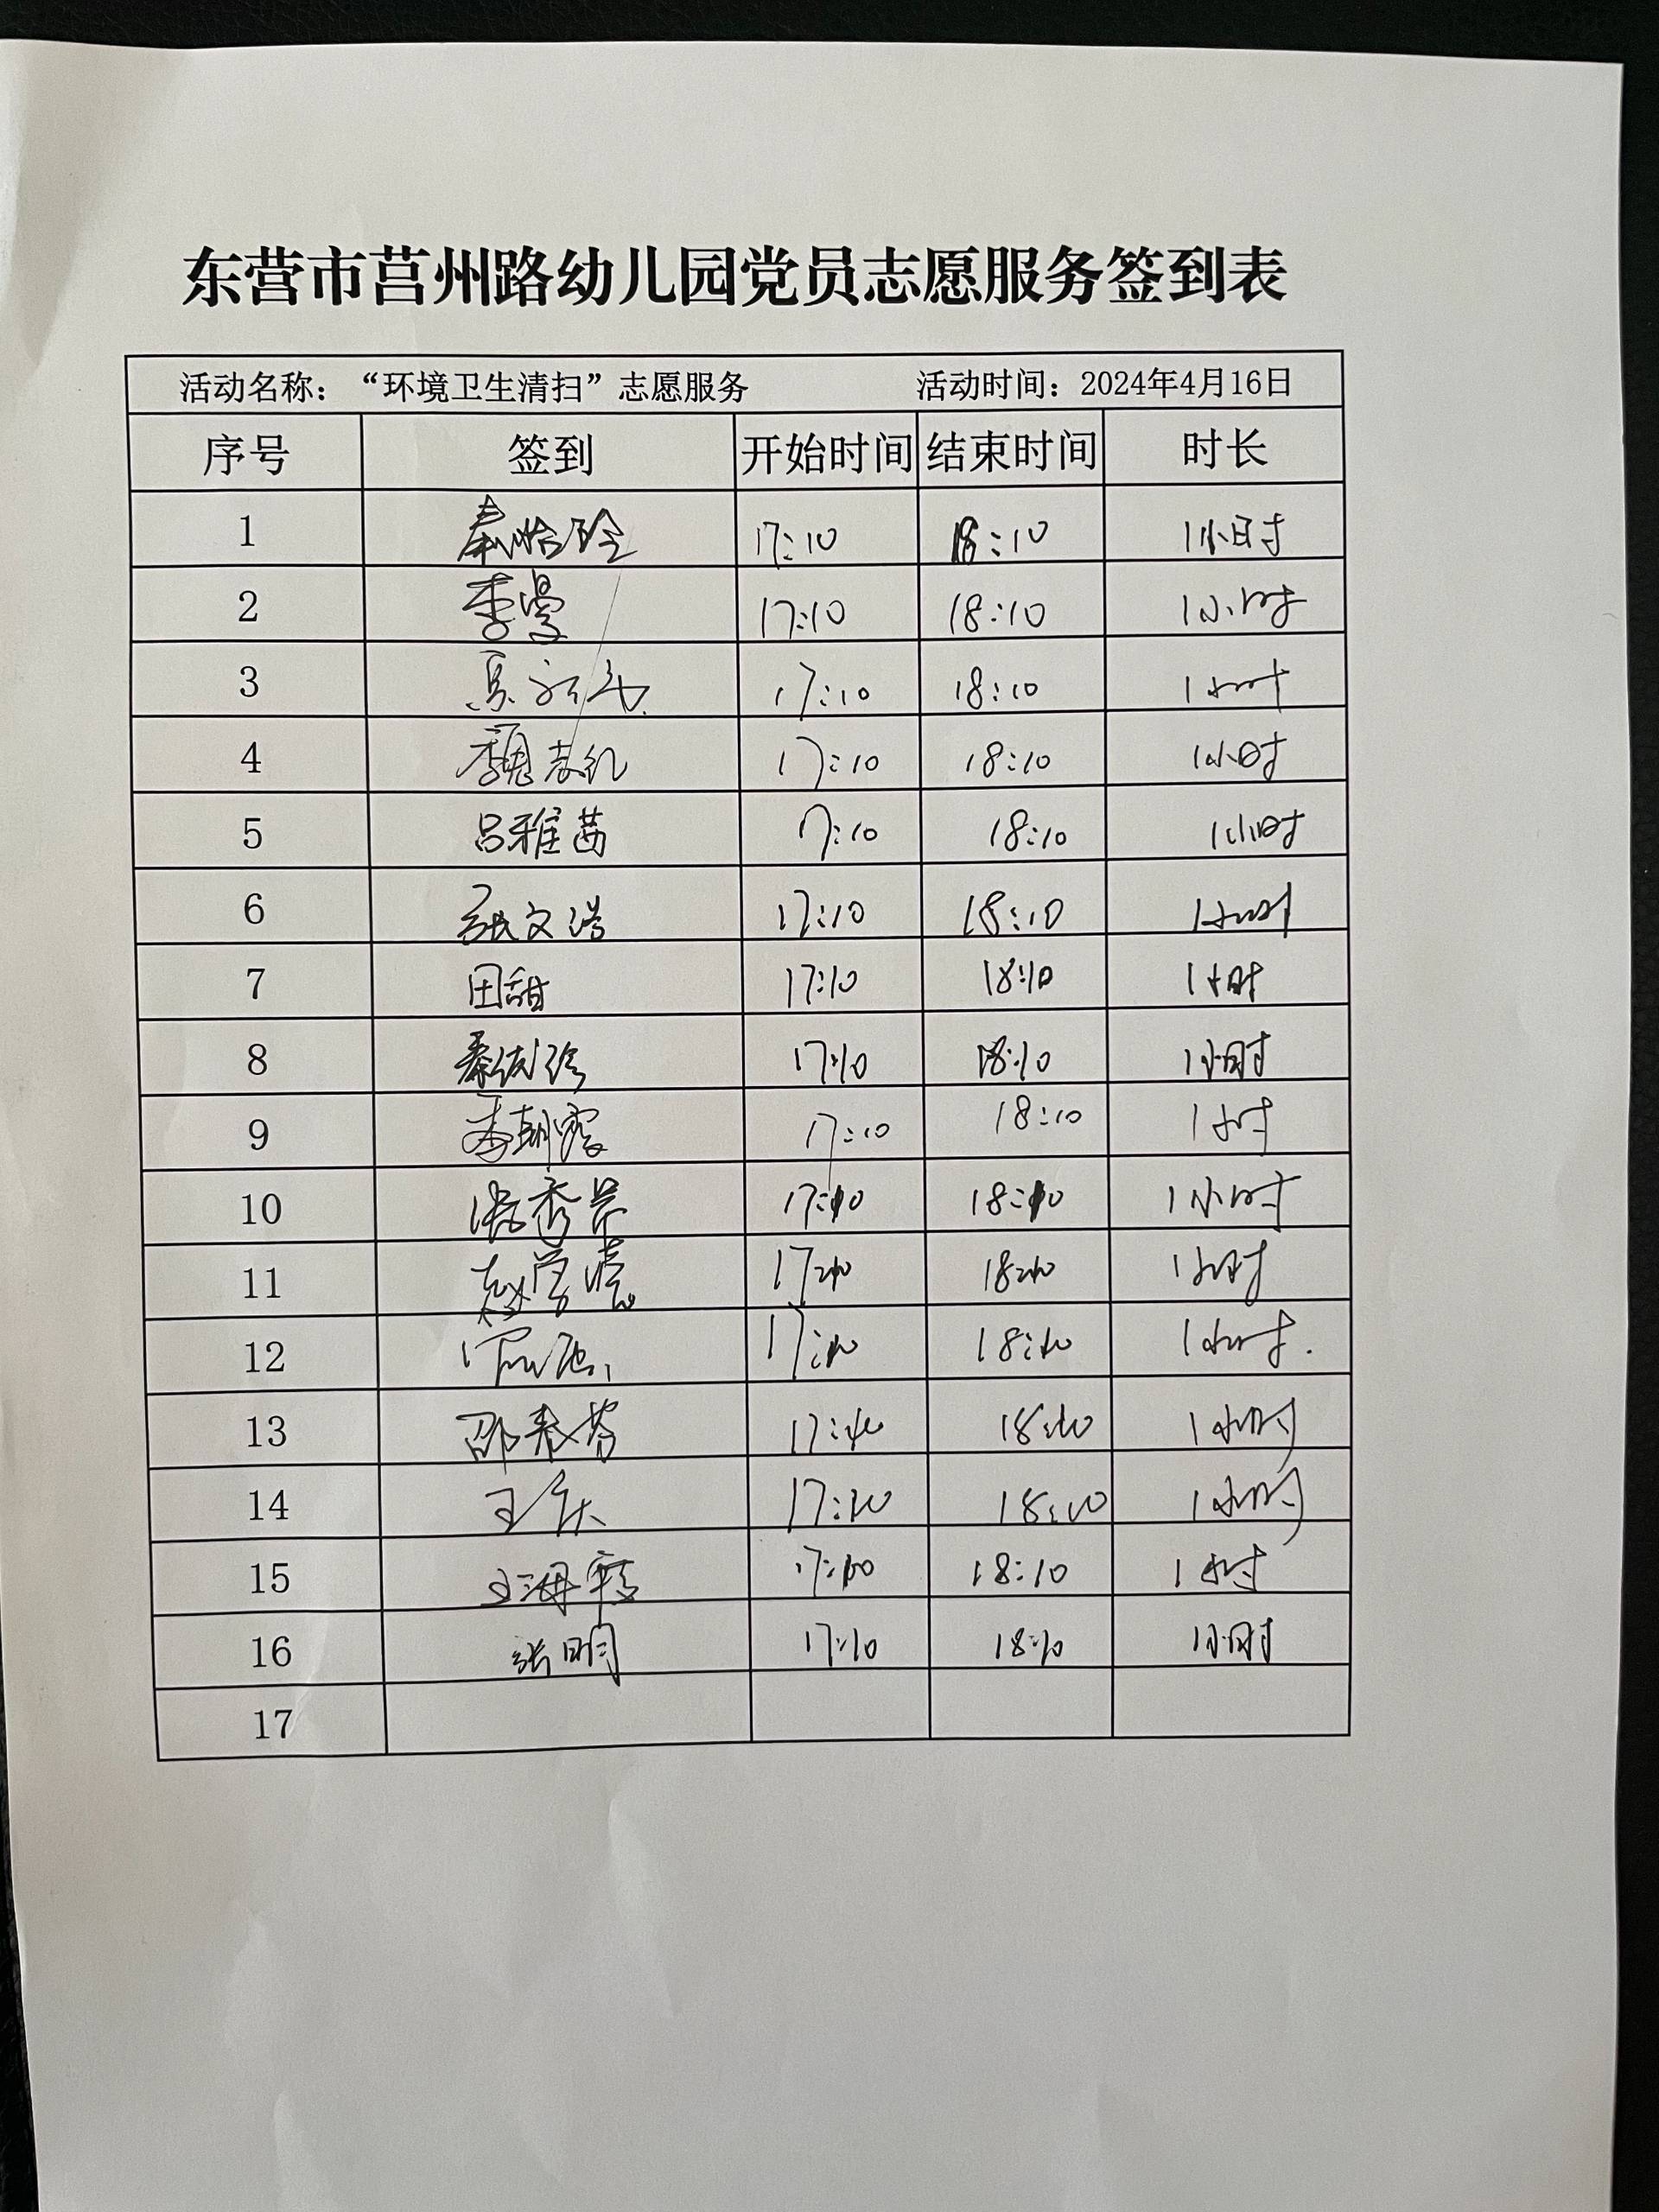 东营市莒州路幼儿园党员志愿服务签到表
活动名称：“环境卫生清扫”志愿服务 活动时间：2024年4月16日
序号 签到 开始时间 结束时间 时长
1 17:10 18:10 1小时
2 李曼 17:10 18:10 1小时
3 17:10 18:10 1小时
4 17:10 18:10 1小时
5 吕雅茜 17:10 18:10 1小时
6 张文浩 17:10 18:10 1小时
7 田甜 17:10 18:10 1小时
8 17:10 18:10 1小时
9 李朝霞 17:10 18:10 1小时
10 17:10 18:10 1小时
11 17:10 18:10 1小时
12 17:10 18:10 1小时
13 邵春芬 18:10 1小时
14 王 18:10 1小时
15 王海霞 18:10 1小时
16 张明 17:10 18:10 1小时
17